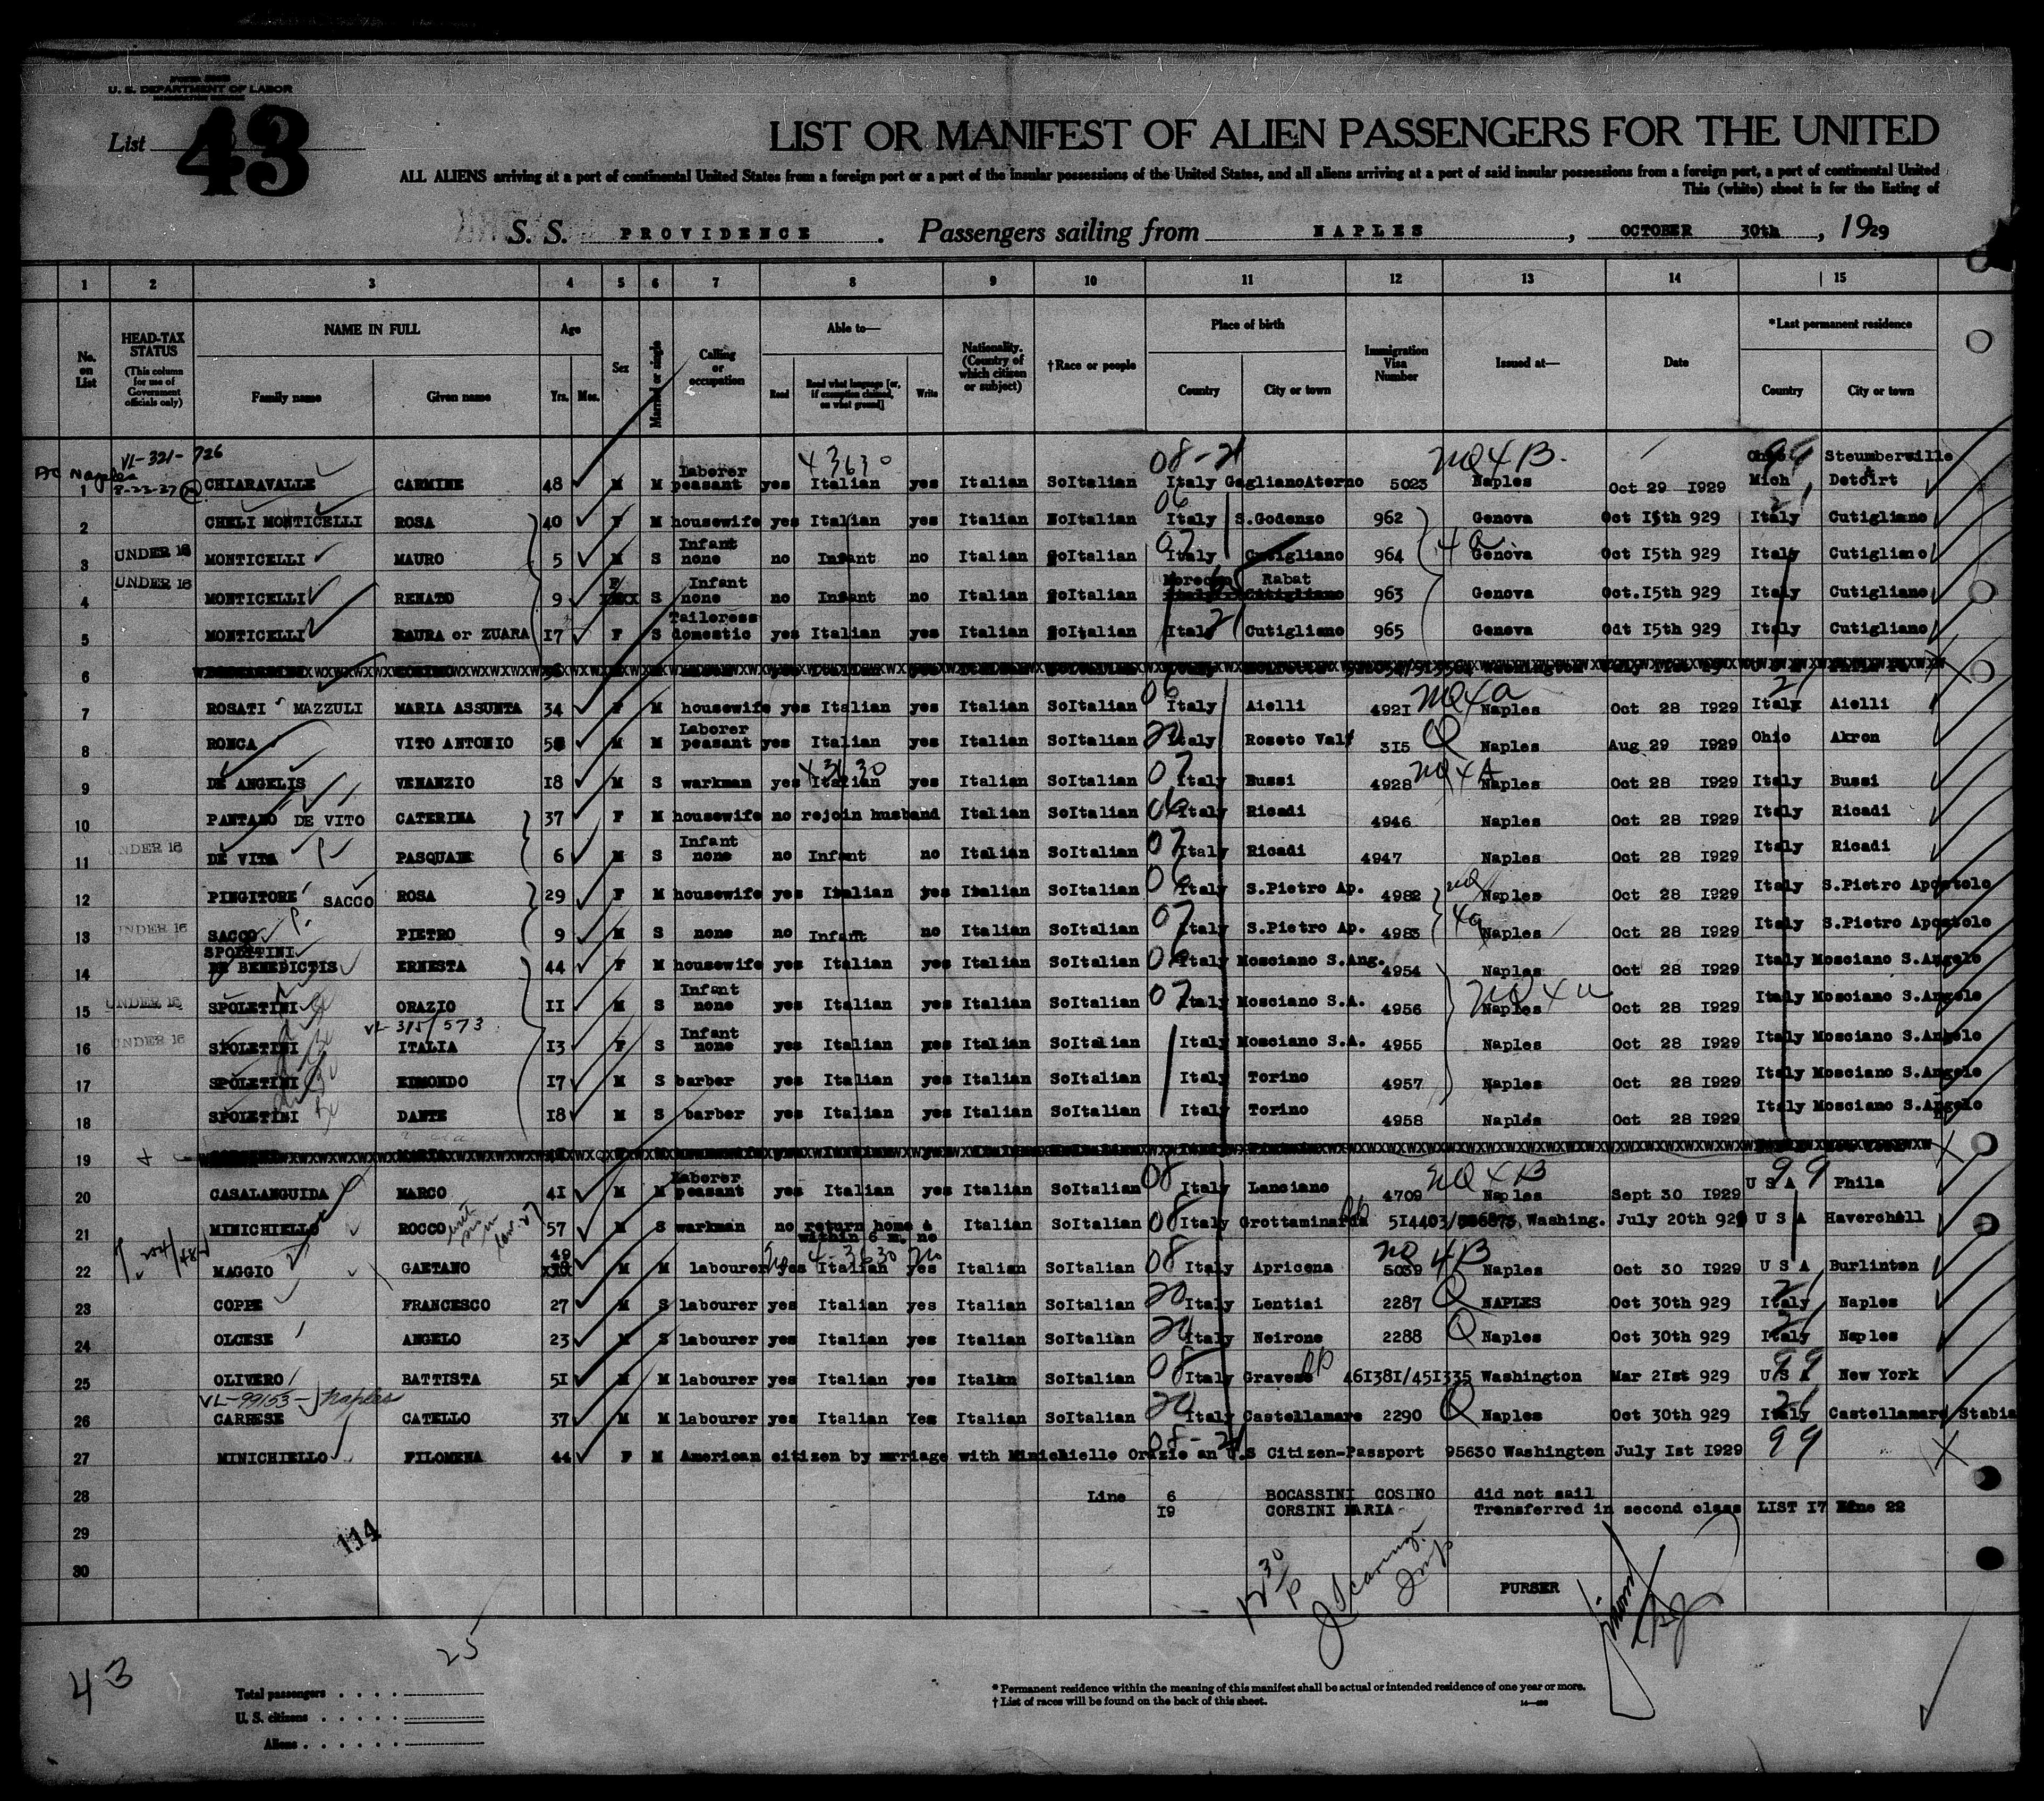 U. S. DEPARTMENT OF LABOR
List 43
LIST OR MANIFEST OF ALIEN PASSENGERS FOR THE UNITED
ALL ALIENS arriving at a port of continental United States from a foreign port or a port of the insular possessions of the United States, and all aliens arriving at a port of said insular possessions from a foreign port, a part of continental United
This (white) sheet is for the listing of
S. S. PROVIDENCE. Passengers sailing from NAPLES, OCTOBER 30th, 1929
1 2 3 4 5 6 7 8 9 10 11 12 13 14 15
No. on List HEAD-TAX STATUS (This column for use of Government officials only) NAME IN FULL Family name Given name Age Yrs. Mos. Sex Married or single Calling or occupation Able to— Read Read what language [or, if exemption claimed, on what ground] Write Nationality. (Country of which citizen or subject) †Race or people Place of birth Country City or town Immigration Visa Number Issued at— Date *Last permanent residence Country City or town
VL-321-726 43630 08-21 NQ4B. Steumberville
1 8-23-37 CHIARAVALLE CARMINE 48 M M Laborer peasant yes Italian yes Italian SoItalian Italy GaglianoAterno 5023 Naples Oct 29 1929 Mich Detoirt
2 CHELI MONTICELLI ROSA 40 F M housewife yes Italian yes Italian SoItalian 06 Italy S.Godenzo 962 Genova Oct 15th 929 Italy Cutigliano
3 UNDER 16 MONTICELLI MAURO 5 M S Infant none no Infant no Italian SoItalian 07 Italy Cutigliano 964 4a Genova Oct 15th 929 Italy Cutigliano
4 UNDER 16 MONTICELLI RENATO 9 F S Infant none no Infant no Italian SoItalian Rabat 963 Genova Oct.15th 929 Italy Cutigliano
5 MONTICELLI ZAURA or ZUARA 17 F S Taileress domestic yes Italian yes Italian SoItalian Italy Cutigliano 965 Genova Oct 15th 929 Italy Cutigliano
6
7 ROSATI MAZZULI MARIA ASSUNTA 34 F M housewife yes Italian yes Italian SoItalian 06 Italy Aielli 4921 NQ4a Naples Oct 28 1929 Italy Aielli
8 RONCA VITO ANTONIO M M Laborer peasant yes Italian yes Italian SoItalian 20 Italy Roseto Valf 315 Q Naples Aug 29 1929 Ohio Akron
9 DE ANGELIS VENANZIO 18 M S warkman yes Italian yes Italian SoItalian 07 Italy Bussi 4928 NQ4A Naples Oct 28 1929 Italy Bussi
10 PANTANO DE VITO CATERINA 37 F M housewife no rejoin husband Italian SoItalian 06 Italy Ricadi 4946 Naples Oct 28 1929 Italy Ricadi
11 UNDER 16 DE VITA PASQUALE 6 M S Infant none no Infant no Italian SoItalian 07 Italy Ricadi 4947 Naples Oct 28 1929 Italy Ricadi
12 PINGITORE SACCO ROSA 29 F M housewife yes Italian yes Italian SoItalian 06 Italy S.Pietro Ap. 4982 NQ Naples Oct 28 1929 Italy S.Pietro Apostolo
13 UNDER 16 SACCO PIETRO 9 M S none no Infant no Italian SoItalian 07 Italy S.Pietro Ap. 4983 4a Naples Oct 28 1929 Italy S.Pietro Apostolo
14 SPOLETINI DE BENEDICTIS ERNESTA 44 F M housewife yes Italian yes Italian SoItalian 06 Italy Mosciano S.Ang. 4954 Naples Oct 28 1929 Italy Mosciano S.Angelo
15 UNDER 16 SPOLETINI ORAZIO 11 M S Infant none yes Italian yes Italian SoItalian 07 Italy Mosciano S.A. 4956 NQ4a Naples Oct 28 1929 Italy Mosciano S.Angelo
VL-315/573
16 UNDER 16 SPOLETINI ITALIA 13 F S Infant none yes Italian yes Italian SoItalian Italy Mosciano S.A. 4955 Naples Oct 28 1929 Italy Mosciano S.Angelo
17 SPOLETINI EDMONDO 17 M S barber yes Italian yes Italian SoItalian Italy Torino 4957 Naples Oct 28 1929 Italy Mosciano S.Angelo
18 SPOLETINI DANTE 18 M S barber yes Italian yes Italian SoItalian Italy Torino 4958 Naples Oct 28 1929 Italy Mosciano S.Angelo
19
20 CASALANGUIDA MARCO 41 M M Laborer peasant yes Italian yes Italian SoItalian 08 Italy Lanciano 4709 NQ4B Naples Sept 30 1929 99 U S A Phila
21 MINICHIELLO ROCCO 57 M S warkman no return home within 6 m. no Italian SoItalian 08 Italy Grottaminarda 514403/ Washing. July 20th 929 U S A Haverchell
22 MAGGIO GAETANO 49 M M labourer yes Italian yes Italian SoItalian 08 Italy Apricena 5039 NQ 4B Naples Oct 30 1929 U S A Burlinton
23 COPPE FRANCESCO 27 M S labourer yes Italian yes Italian SoItalian 20 Italy Lentiai 2287 Q NAPLES Oct 30th 929 Italy Naples
24 OLCESE ANGELO 23 M S labourer yes Italian yes Italian SoItalian 20 Italy Neirone 2288 Q Naples Oct 30th 929 Italy Naples
25 OLIVERO BATTISTA 51 M M labourer yes Italian yes Italan SoItalian 08 Italy Gravese 461381/451335 Washington Mar 21st 929 99 U S A New York
VL-99153- Naples
26 CARRESE CATELLO 37 M M labourer yes Italian Yes Italian SoItalian 20 Italy Castellamare 2290 Q Naples Oct 30th 929 Italy Castellamare Stabia
27 MINICHIELLO FILOMENA 44 F M American citizen by mrriage with Minichielle Orazie an U.S Citizen-Passport 95630 Washington July 1st 1929 99
28 Line 6 BOCASSINI COSINO did not sail
19 CORSINI MARIA Transferred in second class LIST 17 Line 22
29 114
30 PURSER
25
43
Total passengers
U. S. citizens
Aliens
* Permanent residence within the meaning of this manifest shall be actual or intended residence of one year or more.
† List of races will be found on the back of this sheet.